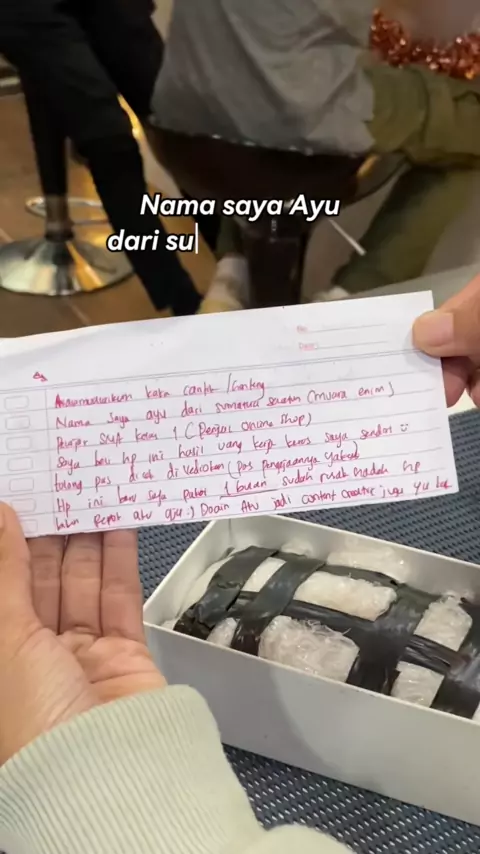 Nama saya Ayu
dari su
No.
Date.
Assalamualaikum kaka cantik / Ganteng
Nama saya ayu dari sumatera selatan (muara enim)
Pelajar SMP kelas 1 (Penjual online shop)
Saya beli hp ini hasil uang kerja keras saya sendiri
tolong pas di cek di Videokan (pas pengerjaannya yakak)
Hp ini baru saya pakai 1 bulan sudah rusak
Doain Ayu jadi content creator juga